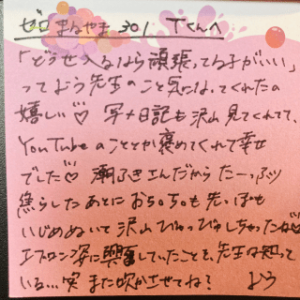 ゼロ まるやま 301 Tくんへ
「どうせ入るなら頑張ってる子がいい」
って よう先生のこと気になってくれたの
嬉しい♡ 写メ日記も沢山見てくれてて、
YouTubeのこととか褒めてくれて幸せ
でした♡ 潮ふきエんだからたーっぷり
焦らしたあとにおちんちんも先っぽも
いじめぬいて沢山びゅっびゅしちゃったね♡
エプロン姿に興奮していたことを、先生は知って
いる...笑 また吹かせてね? よう